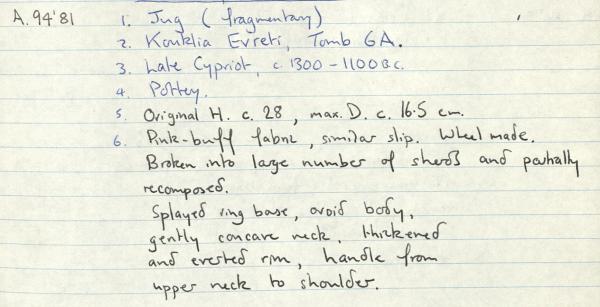 A. 94'81 1. Jug (fragmentary)
2. Kouklia Evreti, Tomb 6A.
3. Late Cypriot, c. 1300 - 1100 B.C.
4. Pottery.
5. Original H. c. 28, max. D. c. 16.5 cm.
6. Pink-buff fabric, similar slip. Wheel made.
Broken into large number of sherds and partially
recomposed.
Splayed ring base, ovoid body,
gently concave neck, thickened
and everted rim, handle from
upper neck to shoulder.